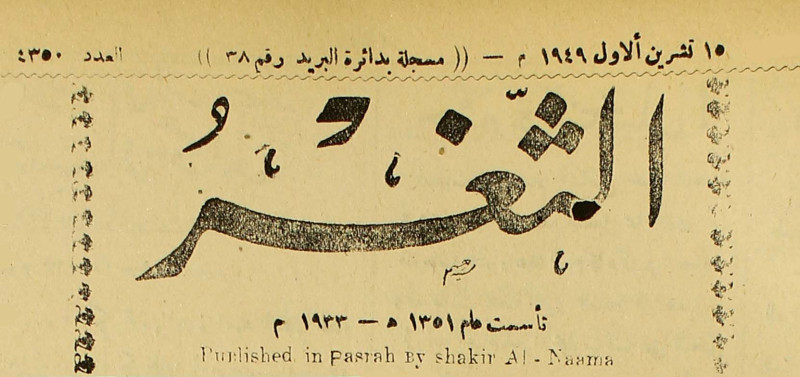 ١٥ تشرين ألاول ١٩٤٩ م — (( مسجلة بدائرة البريد رقم ٣٨ )) العدد ٤٣٥٠
الثَّغْرُ
تأسست عام ١٣٥١ ه — ١٩٣٣ م
Published in Basrah By shakir Al - Naama